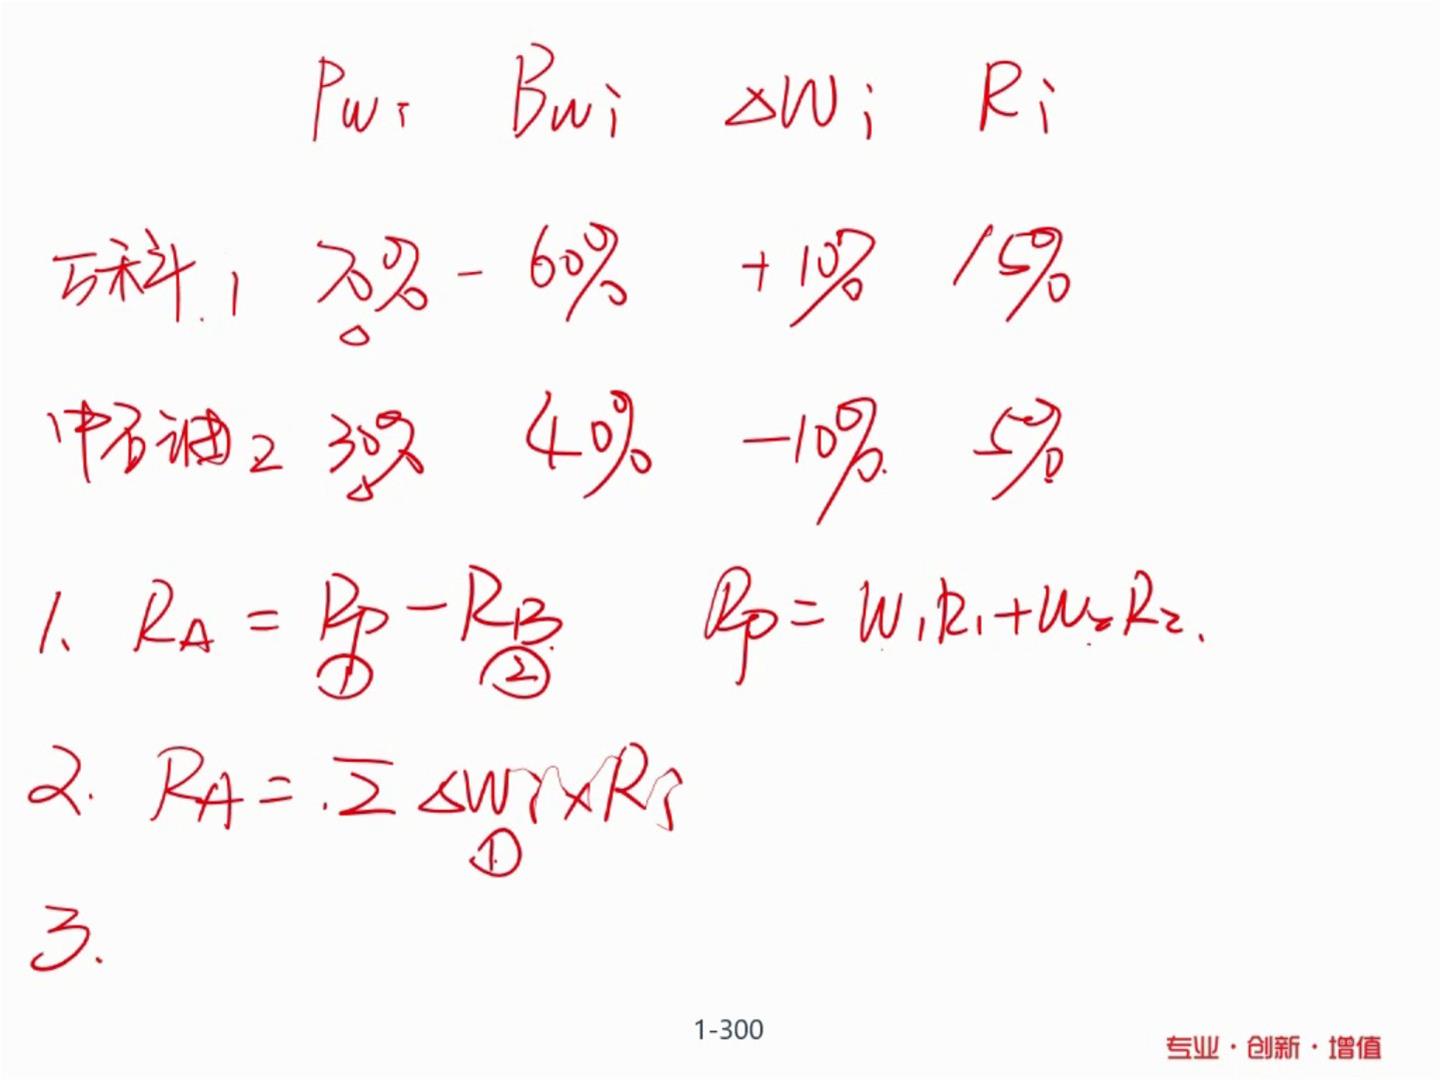 Pwi Bwi ΔWi Ri
万科.1 70% - 60% +10% 15%
中石油2 30% 40% -10% 5%
1. RA = Rp - RB Rp = W1R1+W2R2.
① ②
2. RA = .Σ ΔWi×Ri
①
3.
1-300
专业·创新·增值